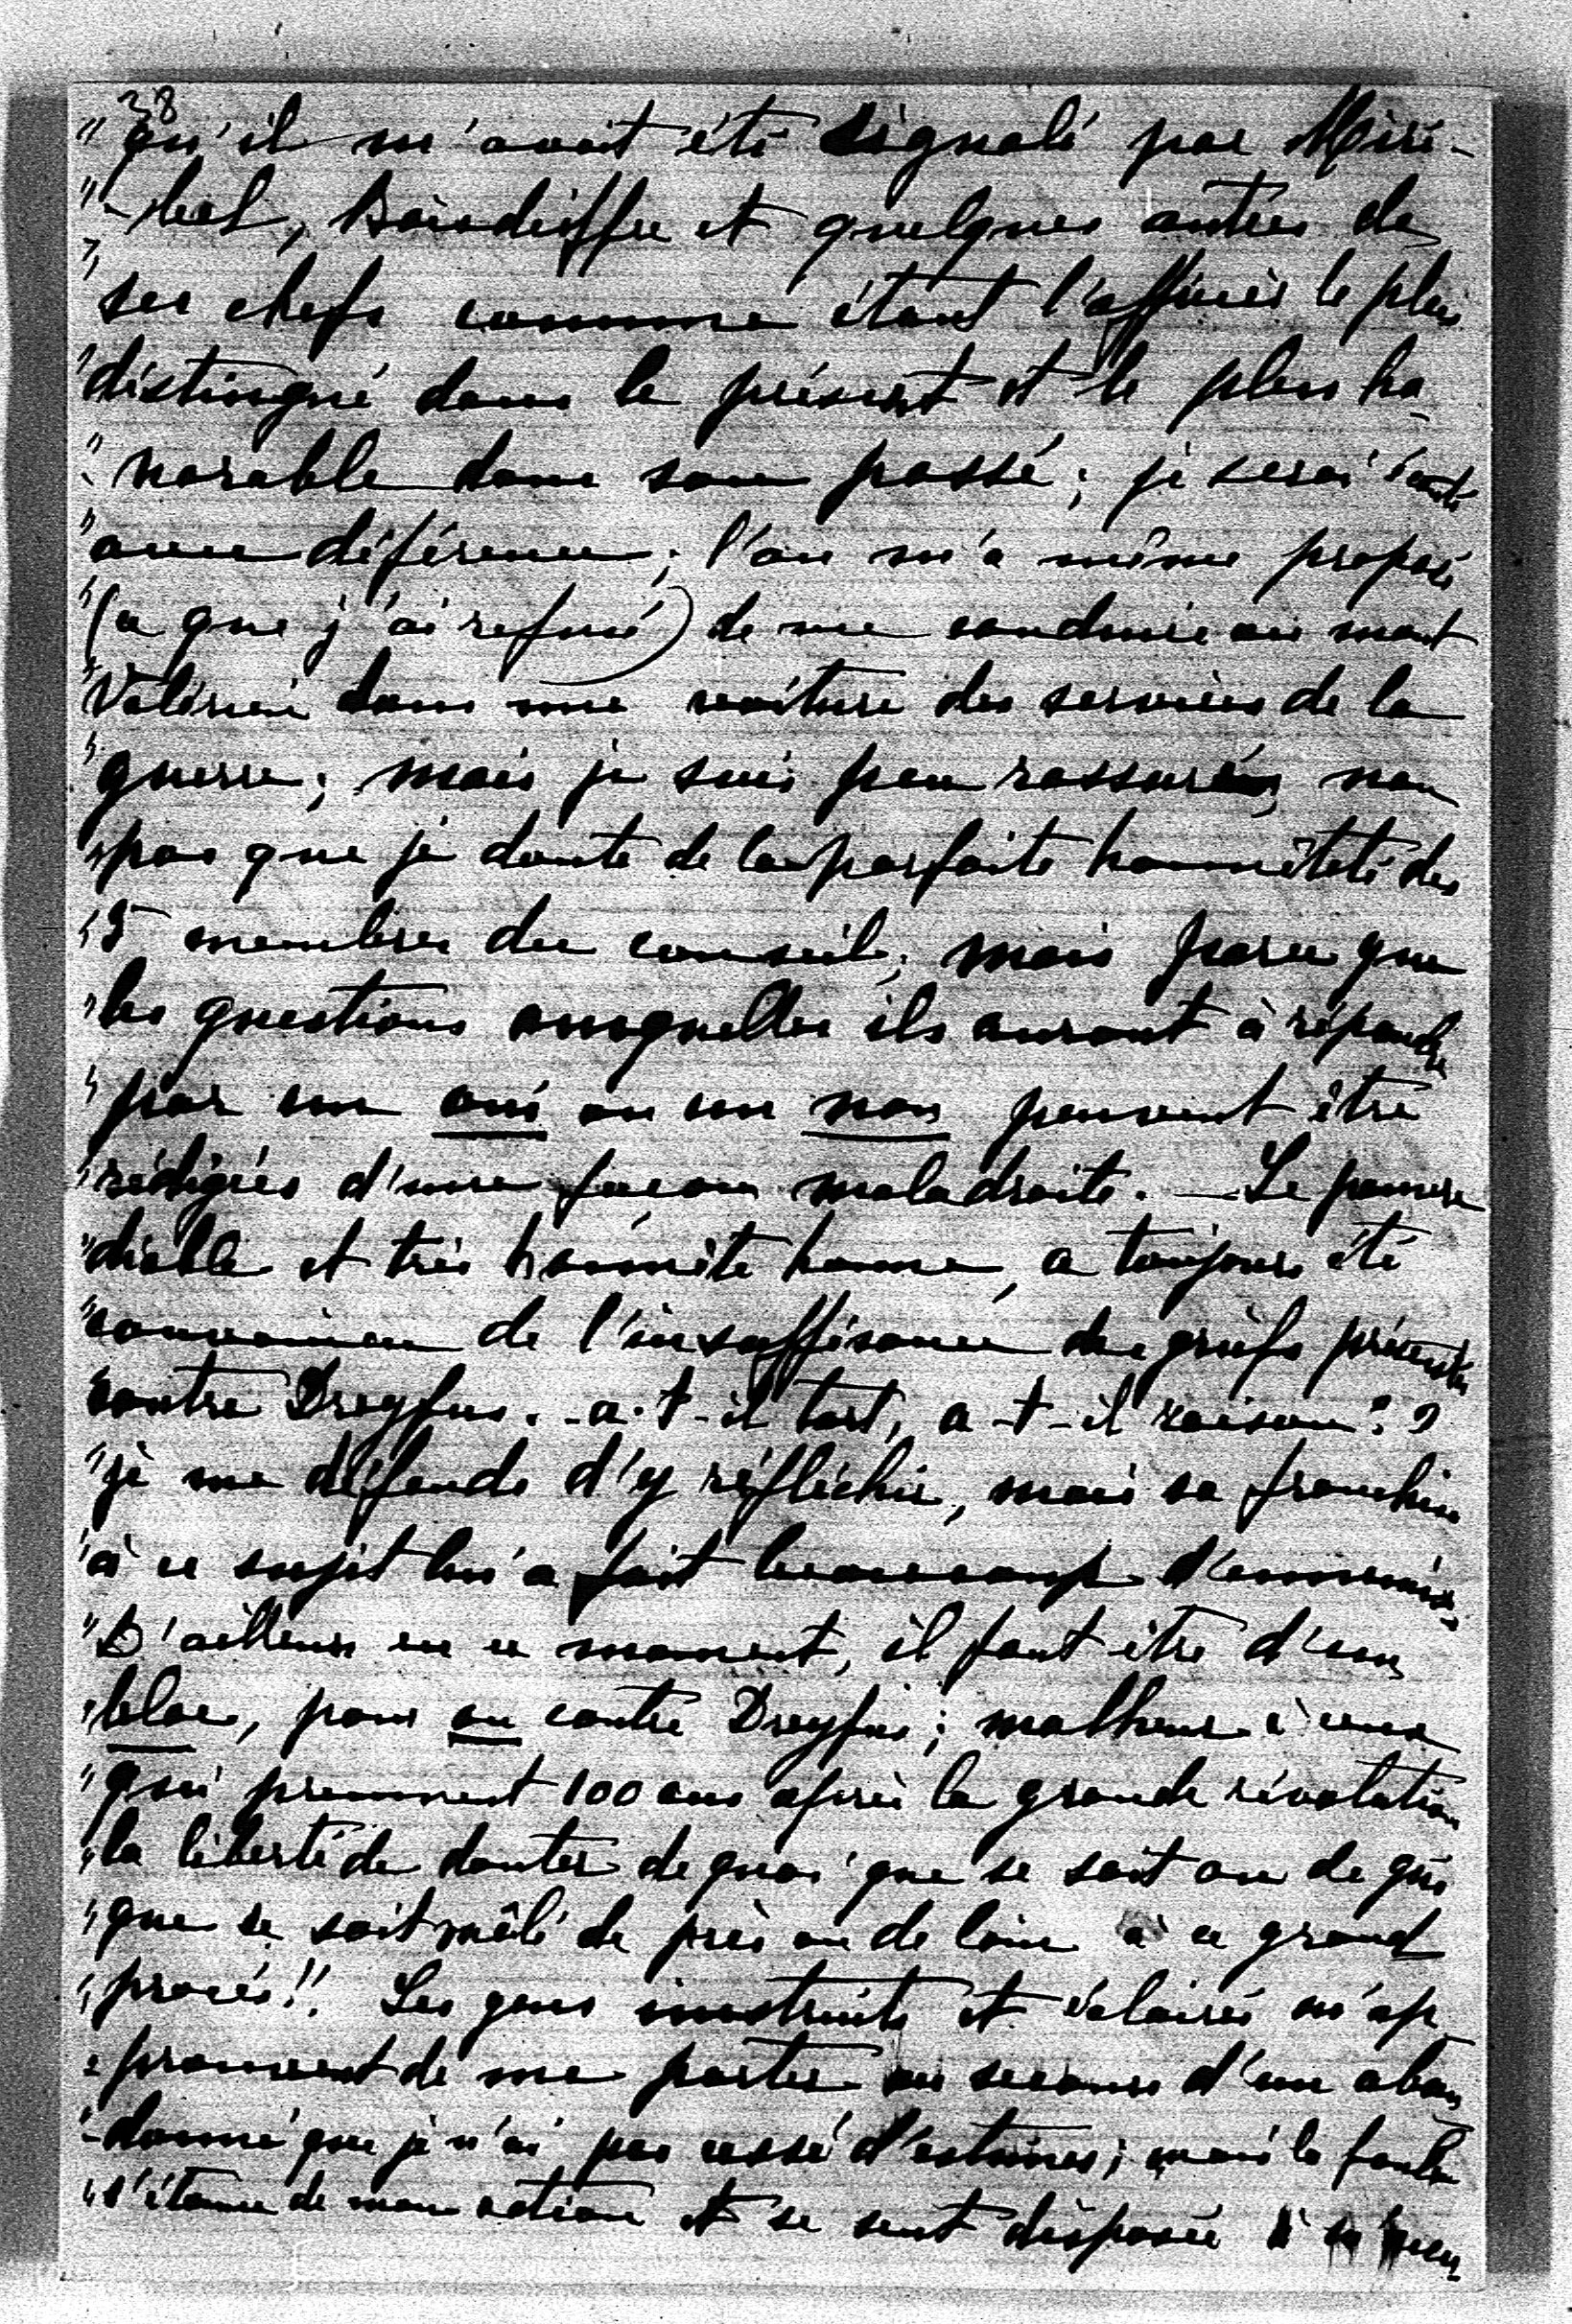 38
" qu'il m'avait été signalé par Miri-
" -bel, Boisdeffre et quelques autres de
" ses chefs comme étant l'officier le plus
" distingué dans le présent et le plus ho-
" norable dans son passé ; je serai écouté
" avec déférence ; l'on m'a même proposé
" (ce que j'ai refusé) de me conduire au mont
" Valérien dans une voiture des services de la
" guerre ; mais je suis peu rassuré, non
" pas que je doute de la parfaite honnêteté des
" 5 membres du conseil, mais parce que
" les questions auxquelles ils auront à répondre
" par un oui ou un non peuvent être
" rédigées d'une façon maladroite. — Le pauvre
" diable et très honnête homme, a toujours été
" convaincu de l'insuffisance des griefs présentés
" contre Dreyfus. - a-t-il tort, a-t-il raison ??
" je me défends d'y réfléchir, mais sa franchise
" à ce sujet lui a fait beaucoup d'ennemis.
" D'ailleurs en ce moment, il faut être d'un
" bloc, pour ou contre Dreyfus ; malheur à ceux
" qui prennent 100 ans après la grande révolution
" la liberté de douter de quoi que se soit ou de qui
" que se soit mêlé de près ou de loin à ce grand
" procès !! Les gens instruits et éclairés m'ap-
" prouvent de me porter au secours d'un aban-
" -donné que je n'ai pas cessé d'estimer ; mais la foule
" s'étonne de mon action et se sent disposée à